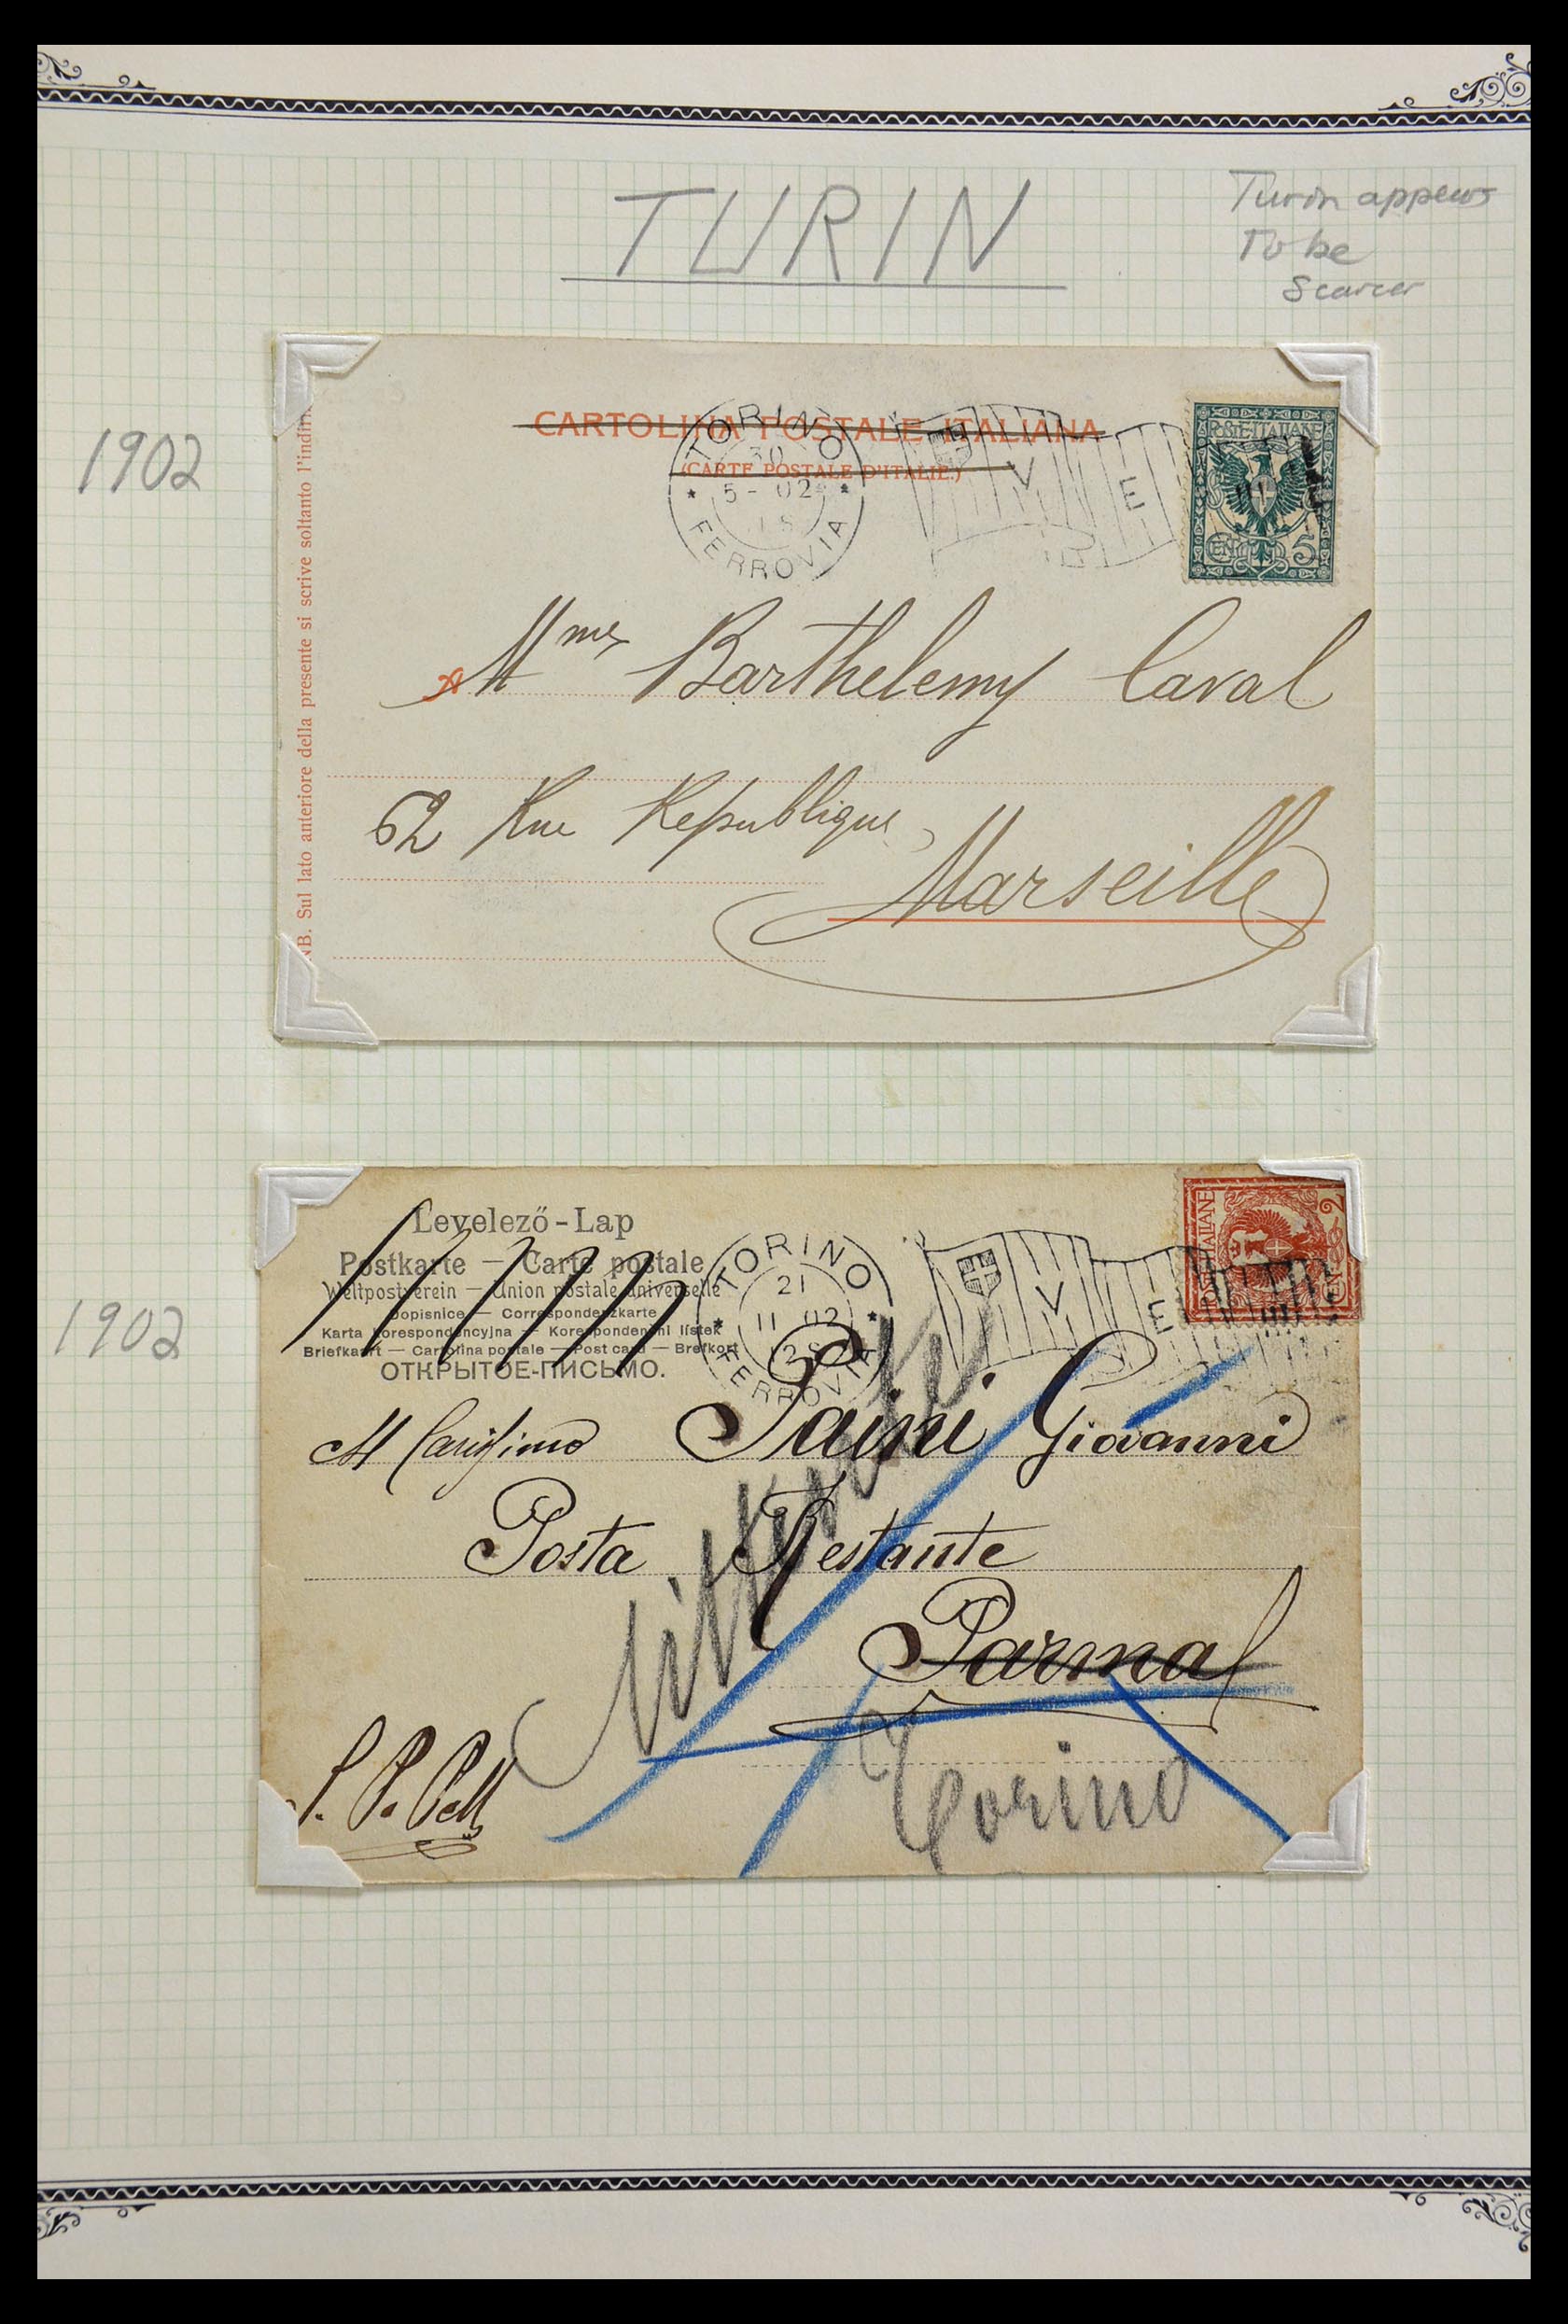 TURIN
Turin appears
To be
Scarcer
1902
CARTOLINA POSTALE ITALIANA
(CARTE POSTALE D'ITALIE.)
TORINO
30
5 - 02
18
FERROVIA
V E
POSTE·ITALIANE
CENT. 5
NB. Sul lato anteriore della presente si scrive soltanto l'indiri
A Mmes Barthelemy Caval
62 Rue Republique
Marseille
1902
Levelező-Lap
Postkarte — Carte postale
Weltpostverein — Union postale universelle
Dopisnice — Correspondenzkarte
Karta korespondencyjna — Korespondenční lístek
Briefkaart — Cartolina postale — Post card — Brefkort
ОТКРЫТОЕ-ПИСЬМО.
TORINO
21
11 02
FERROVIA
V E
ITALIANE
2
Paini Giovanni
Posta Restante
Parma
Torino